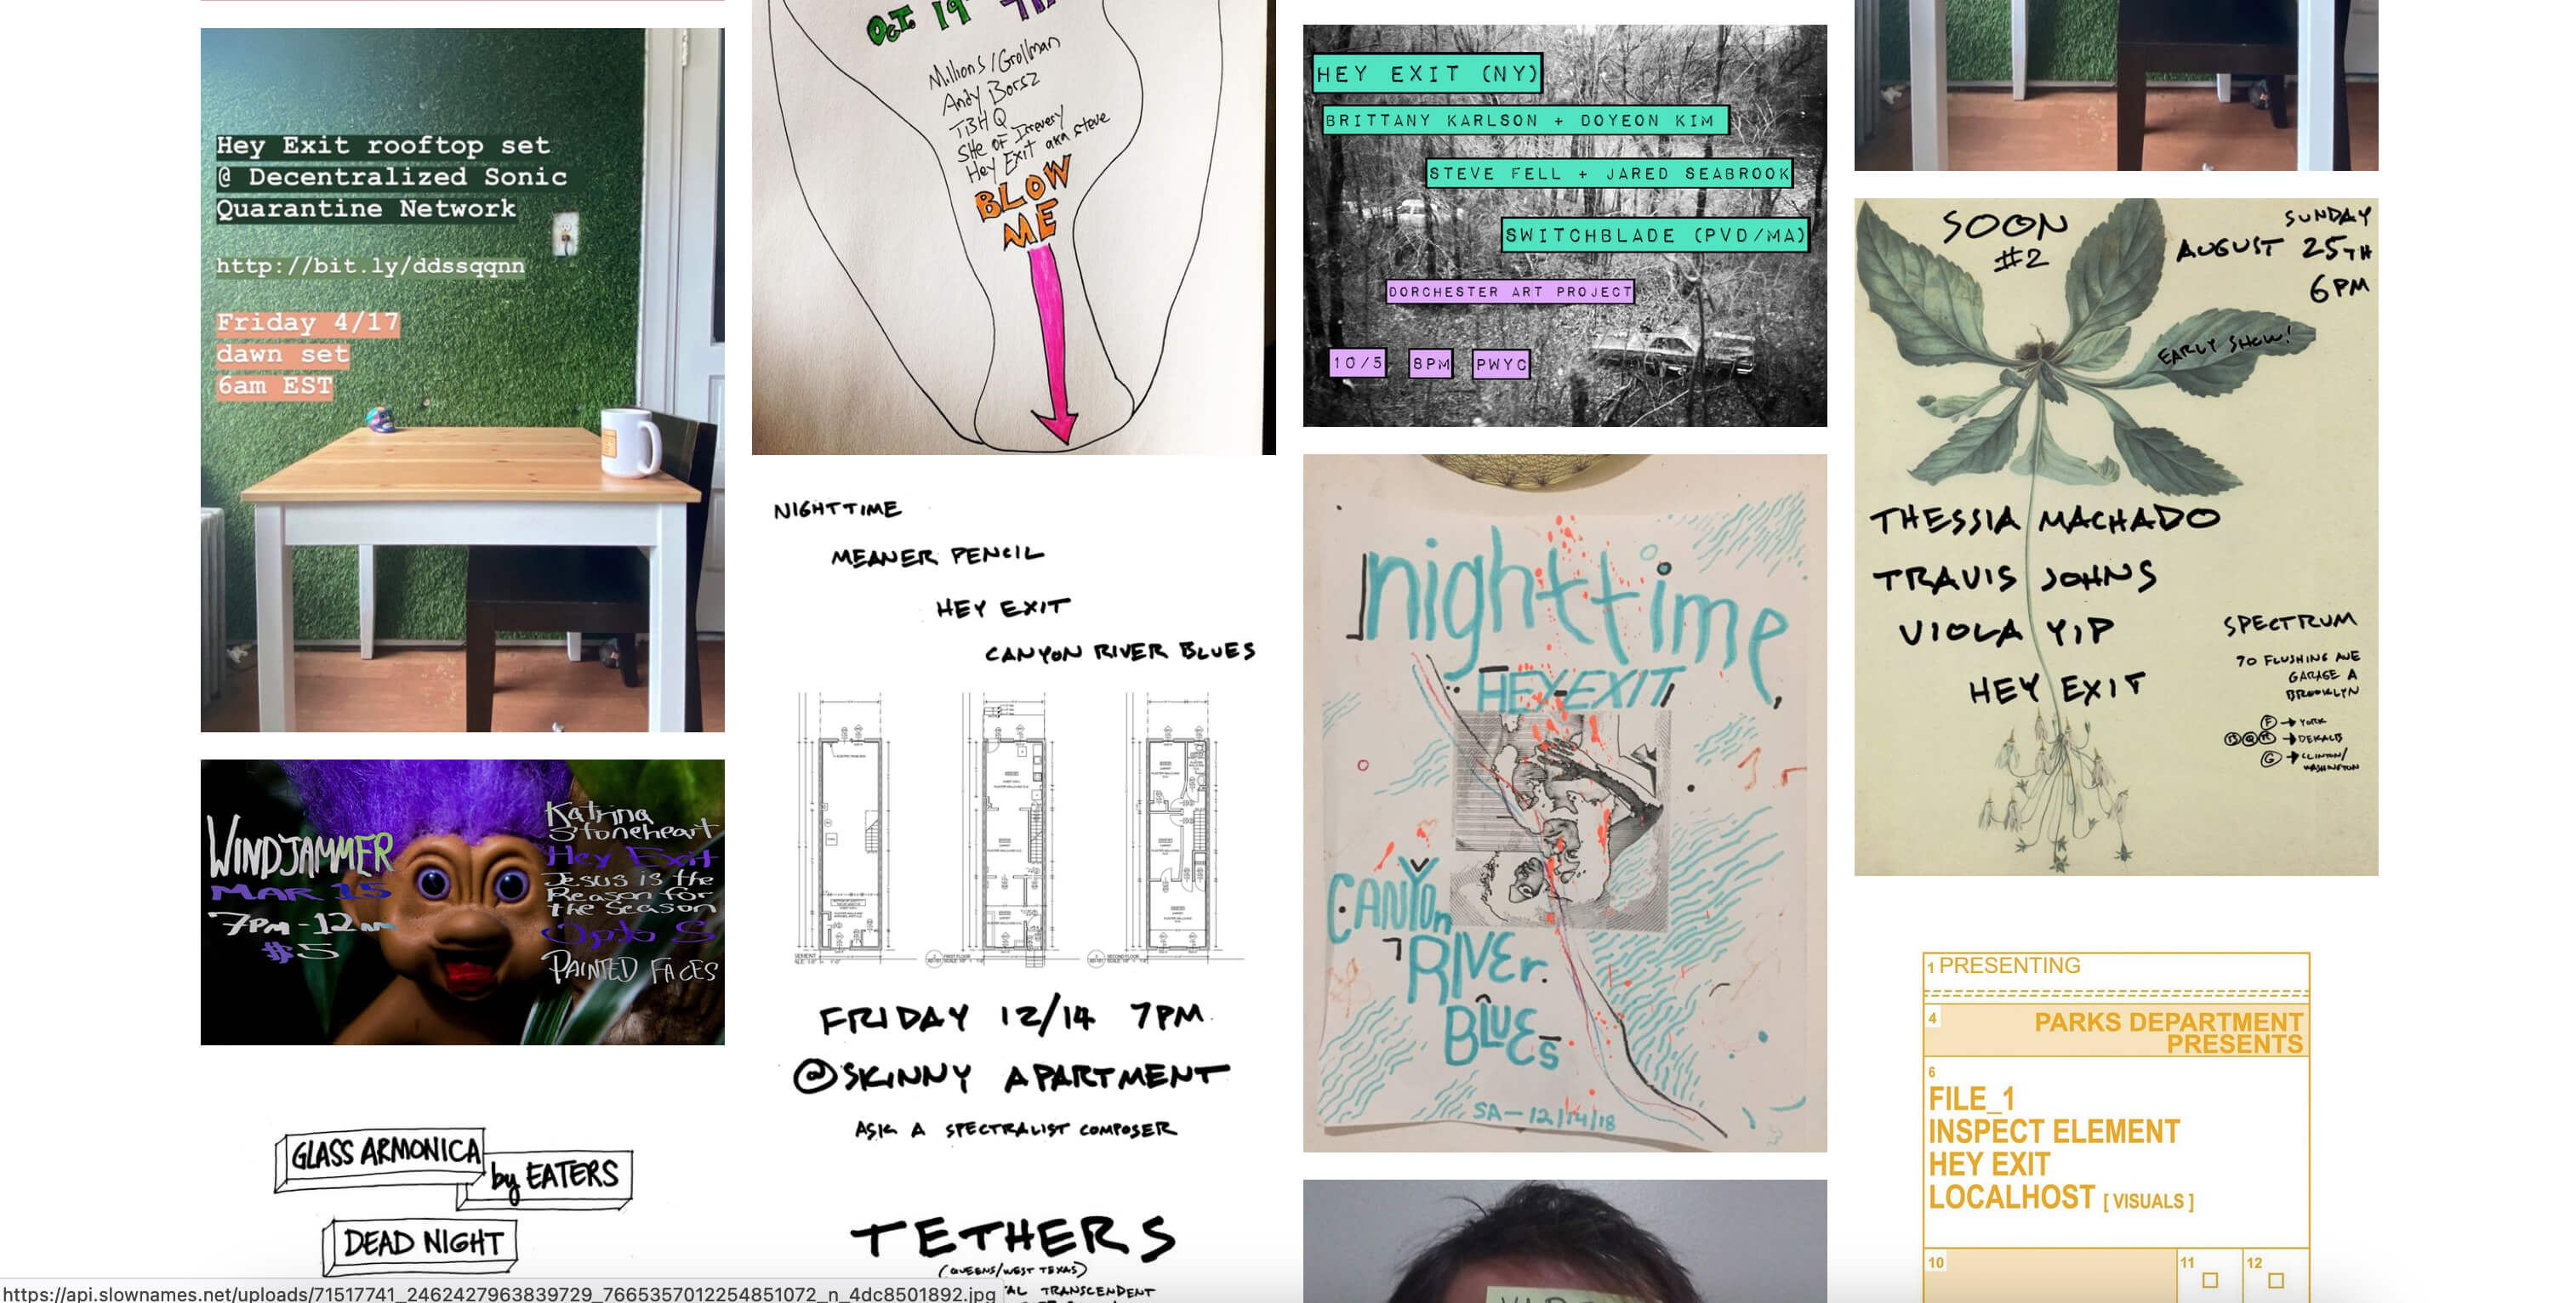 Hey Exit rooftop set
@ Decentralized Sonic
Quarantine Network
http://bit.ly/ddssqqnn
Friday 4/17
dawn set
6am EST
WINDJAMMER
MAR 15
7PM-12AM
$5
Katrina
Stoneheart
Hey Exit
Jesus is the
Reason for
the Season
PAINTED FACES
GLASS ARMONICA
by EATERS
DEAD NIGHT
OCT 19
Millions/Grollman
Andy Borsz
TBHQ
Hey Exit aka Steve
BLOW
ME
NIGHTTIME
MEANER PENCIL
HEY EXIT
CANYON RIVER BLUES
FIRST FLOOR
SECOND FLOOR
FRIDAY 12/14 7PM
@SKINNY APARTMENT
ASK A SPECTRALIST COMPOSER
TETHERS
(QUEENS/WEST TEXAS)
TRANSCENDENT
HEY EXIT (NY)
BRITTANY KARLSON + DOYEON KIM
STEVE FELL + JARED SEABROOK
SWITCHBLADE (PVD/MA)
DORCHESTER ART PROJECT
10/5 8PM PWYC
nighttime
HEY EXIT
CANYOn
RIVEr
BLUES
SA-12/14/18
SOON
#2
SUNDAY
AUGUST 25TH
6PM
EARLY SHOW!
THESSIA MACHADO
TRAVIS JOHNS
VIOLA YIP
HEY EXIT
SPECTRUM
70 FLUSHING AVE
GARAGE A
BROOKLYN
F → YORK
B Q R → DEKALB
G → CLINTON/
WASHINGTON
1 PRESENTING
4 PARKS DEPARTMENT
PRESENTS
6
FILE_1
INSPECT ELEMENT
HEY EXIT
LOCALHOST [ VISUALS ]
10 11 12
https://api.slownames.net/uploads/71517741_2462427963839729_7665357012254851072_n_4dc8501892.jpg